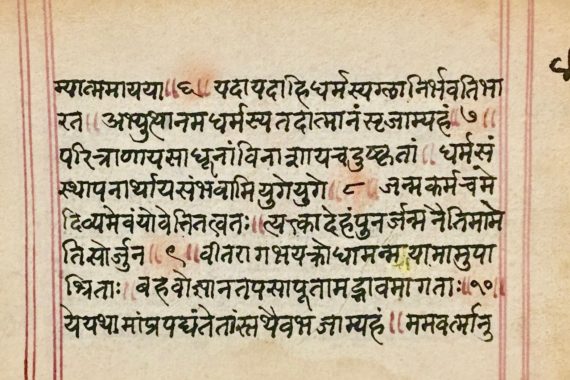 म्यात्ममायया ॥ ६ ॥ यदायदाहिधर्मस्यग्लानिर्भवतिभा
रत ॥ अभ्युत्थानमधर्मस्यतदात्मानंसृजाम्यहं ॥ ७ ॥
परित्राणायसाधूनांविनाशायचदुष्कृतां ॥ धर्मसं
स्थापनार्थायसंभवामियुगेयुगे ॥ ८ ॥ जन्मकर्मचमे
दिव्यमेवंयोवेत्तितत्वतः ॥ त्यक्त्वादेहंपुनर्जन्मनैतिमामे
तिसोर्जुन ॥ ९ ॥ वीतरागभयक्रोधामन्मयामामुपा
श्रिताः ॥ बहवोज्ञानतपसापूतामद्भावमागताः ॥ १० ॥
येयथामांप्रपद्यंतेतांस्तथैवभजाम्यहं ॥ ममवर्त्मानु